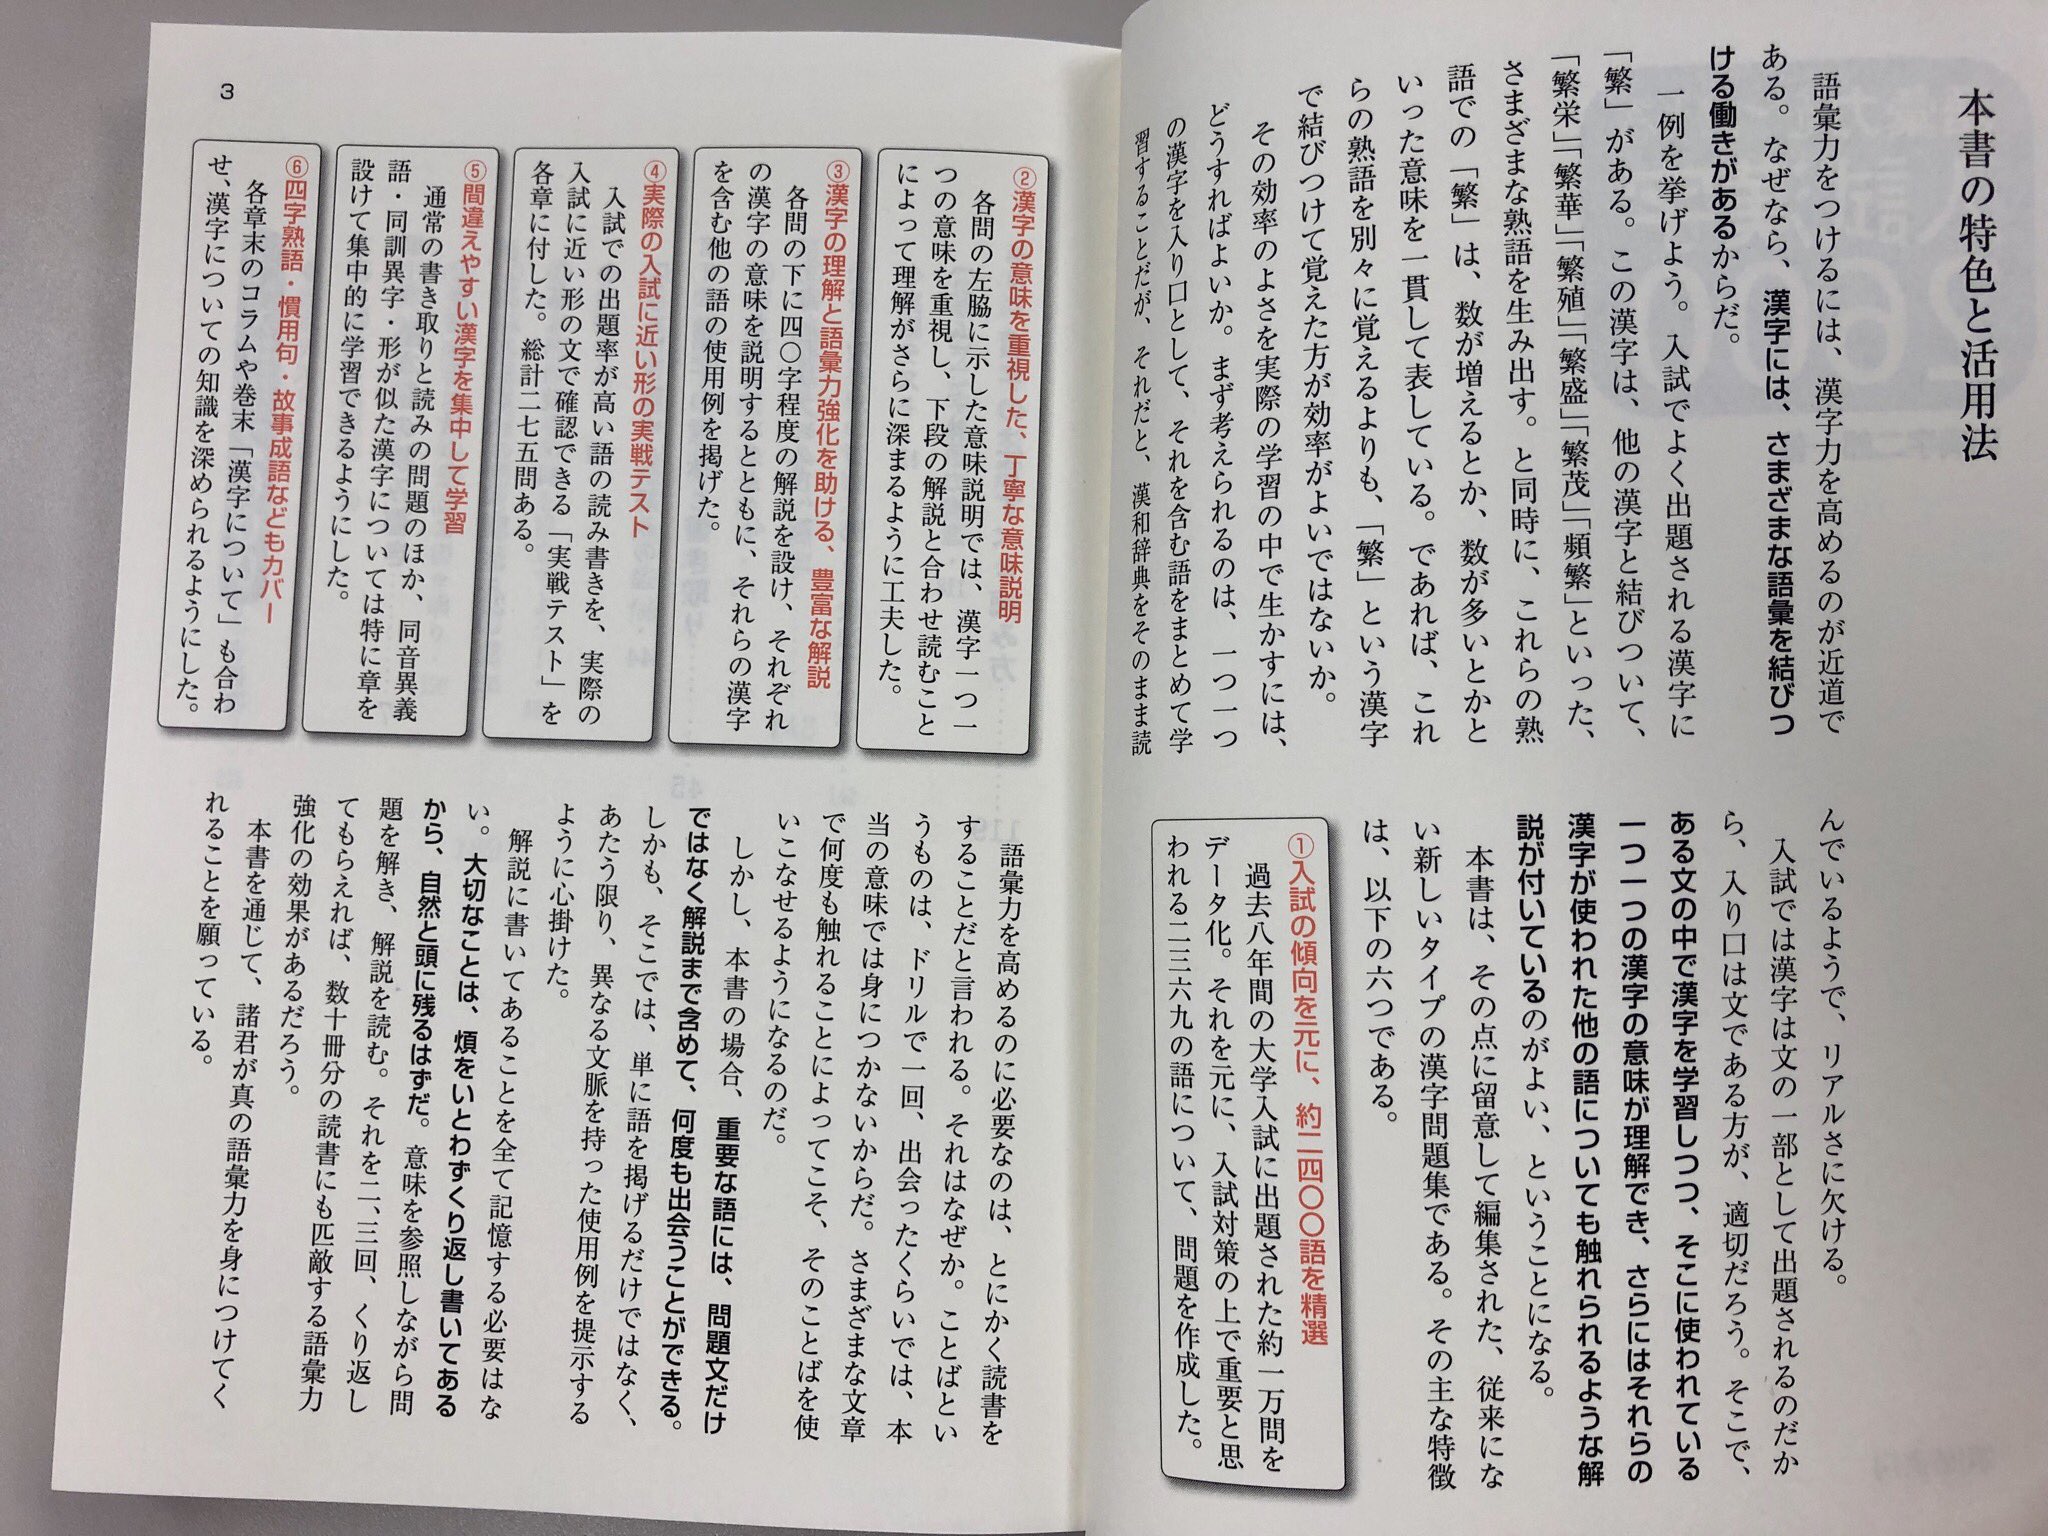 本書の特色と活用法
語彙力をつけるには、漢字力を高めるのが近道で
ある。なぜなら、漢字には、さまざまな語彙を結びつ
ける働きがあるからだ。
一例を挙げよう。入試でよく出題される漢字に
「繁」がある。この漢字は、他の漢字と結びついて、
「繁栄」「繁華」「繁殖」「繁盛」「繁茂」「頻繁」といった、
さまざまな熟語を生み出す。と同時に、これらの熟
語での「繁」は、数が増えるとか、数が多いとかと
いった意味を一貫して表している。であれば、これ
らの熟語を別々に覚えるよりも、「繁」という漢字
で結びつけて覚えた方が効率がよいではないか。
その効率のよさを実際の学習の中で生かすには、
どうすればよいか。まず考えられるのは、一つ一つ
の漢字を入り口として、それを含む語をまとめて学
習することだが、それだと、漢和辞典をそのまま読
んでいるようで、リアルさに欠ける。
入試では漢字は文の一部として出題されるのだか
ら、入り口は文である方が、適切だろう。そこで、
ある文の中で漢字を学習しつつ、そこに使われている
一つ一つの漢字の意味が理解でき、さらにはそれらの
漢字が使われた他の語についても触れられるような解
説が付いているのがよい、ということになる。
本書は、その点に留意して編集された、従来にな
い新しいタイプの漢字問題集である。その主な特徴
は、以下の六つである。
①入試の傾向を元に、約二四〇〇語を精選
過去八年間の大学入試に出題された約一万問を
データ化。それを元に、入試対策の上で重要と思
われる二三六九の語について、問題を作成した。
②漢字の意味を重視した、丁寧な意味説明
各問の左脇に示した意味説明では、漢字一つ一
つの意味を重視し、下段の解説と合わせ読むこと
によって理解がさらに深まるように工夫した。
③漢字の理解と語彙力強化を助ける、豊富な解説
各問の下に四〇字程度の解説を設け、それぞれ
の漢字の意味を説明するとともに、それらの漢字
を含む他の語の使用例を掲げた。
④実際の入試に近い形の実戦テスト
入試での出題率が高い語の読み書きを、実際の
入試に近い形の文で確認できる「実戦テスト」を
各章に付した。総計二七五問ある。
⑤間違えやすい漢字を集中して学習
通常の書き取りと読みの問題のほか、同音異義
語・同訓異字・形が似た漢字については特に章を
設けて集中的に学習できるようにした。
⑥四字熟語・慣用句・故事成語などもカバー
各章末のコラムや巻末「漢字について」も合わ
せ、漢字についての知識を深められるようにした。
語彙力を高めるのに必要なのは、とにかく読書を
することだと言われる。それはなぜか。ことばとい
うものは、ドリルで一回、出会ったくらいでは、本
当の意味では身につかないからだ。さまざまな文章
で何度も触れることによってこそ、そのことばを使
いこなせるようになるのだ。
しかし、本書の場合、重要な語には、問題文だけ
ではなく解説まで含めて、何度も出会うことができる。
しかも、そこでは、単に語を掲げるだけではなく、
あたう限り、異なる文脈を持った使用例を提示する
ように心掛けた。
解説に書いてあることを全て記憶する必要はな
い。大切なことは、煩をいとわずくり返し書いてある
から、自然と頭に残るはずだ。意味を参照しながら問
題を解き、解説を読む。それを二、三回、くり返し
てもらえれば、数十冊分の読書にも匹敵する語彙力
強化の効果があるだろう。
本書を通じて、諸君が真の語彙力を身につけてく
れることを願っている。
3